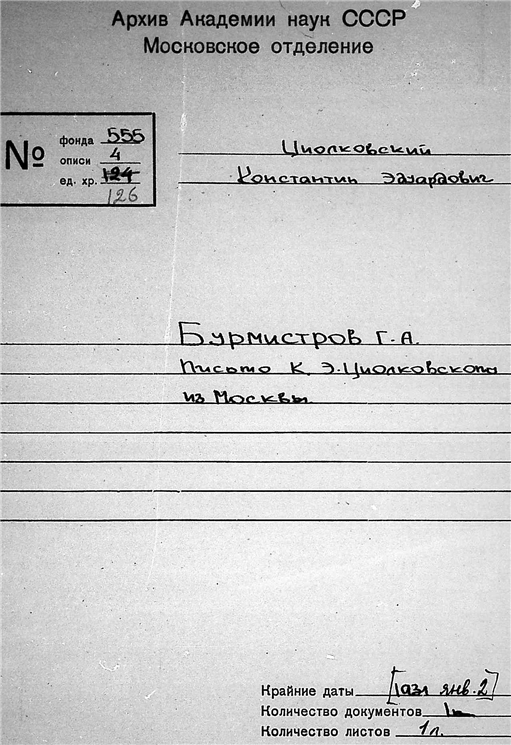 Архив Академии наук СССР
Московское отделение
№
фонда 555
описи 4
ед. хр. 124
126
Циолковский
Константин Эдуардович
Бурмистров Г. А.
Письмо К. Э. Циолковскому
из Москвы
Крайние даты янв. 2]
Количество документов 1
Количество листов 1 л.